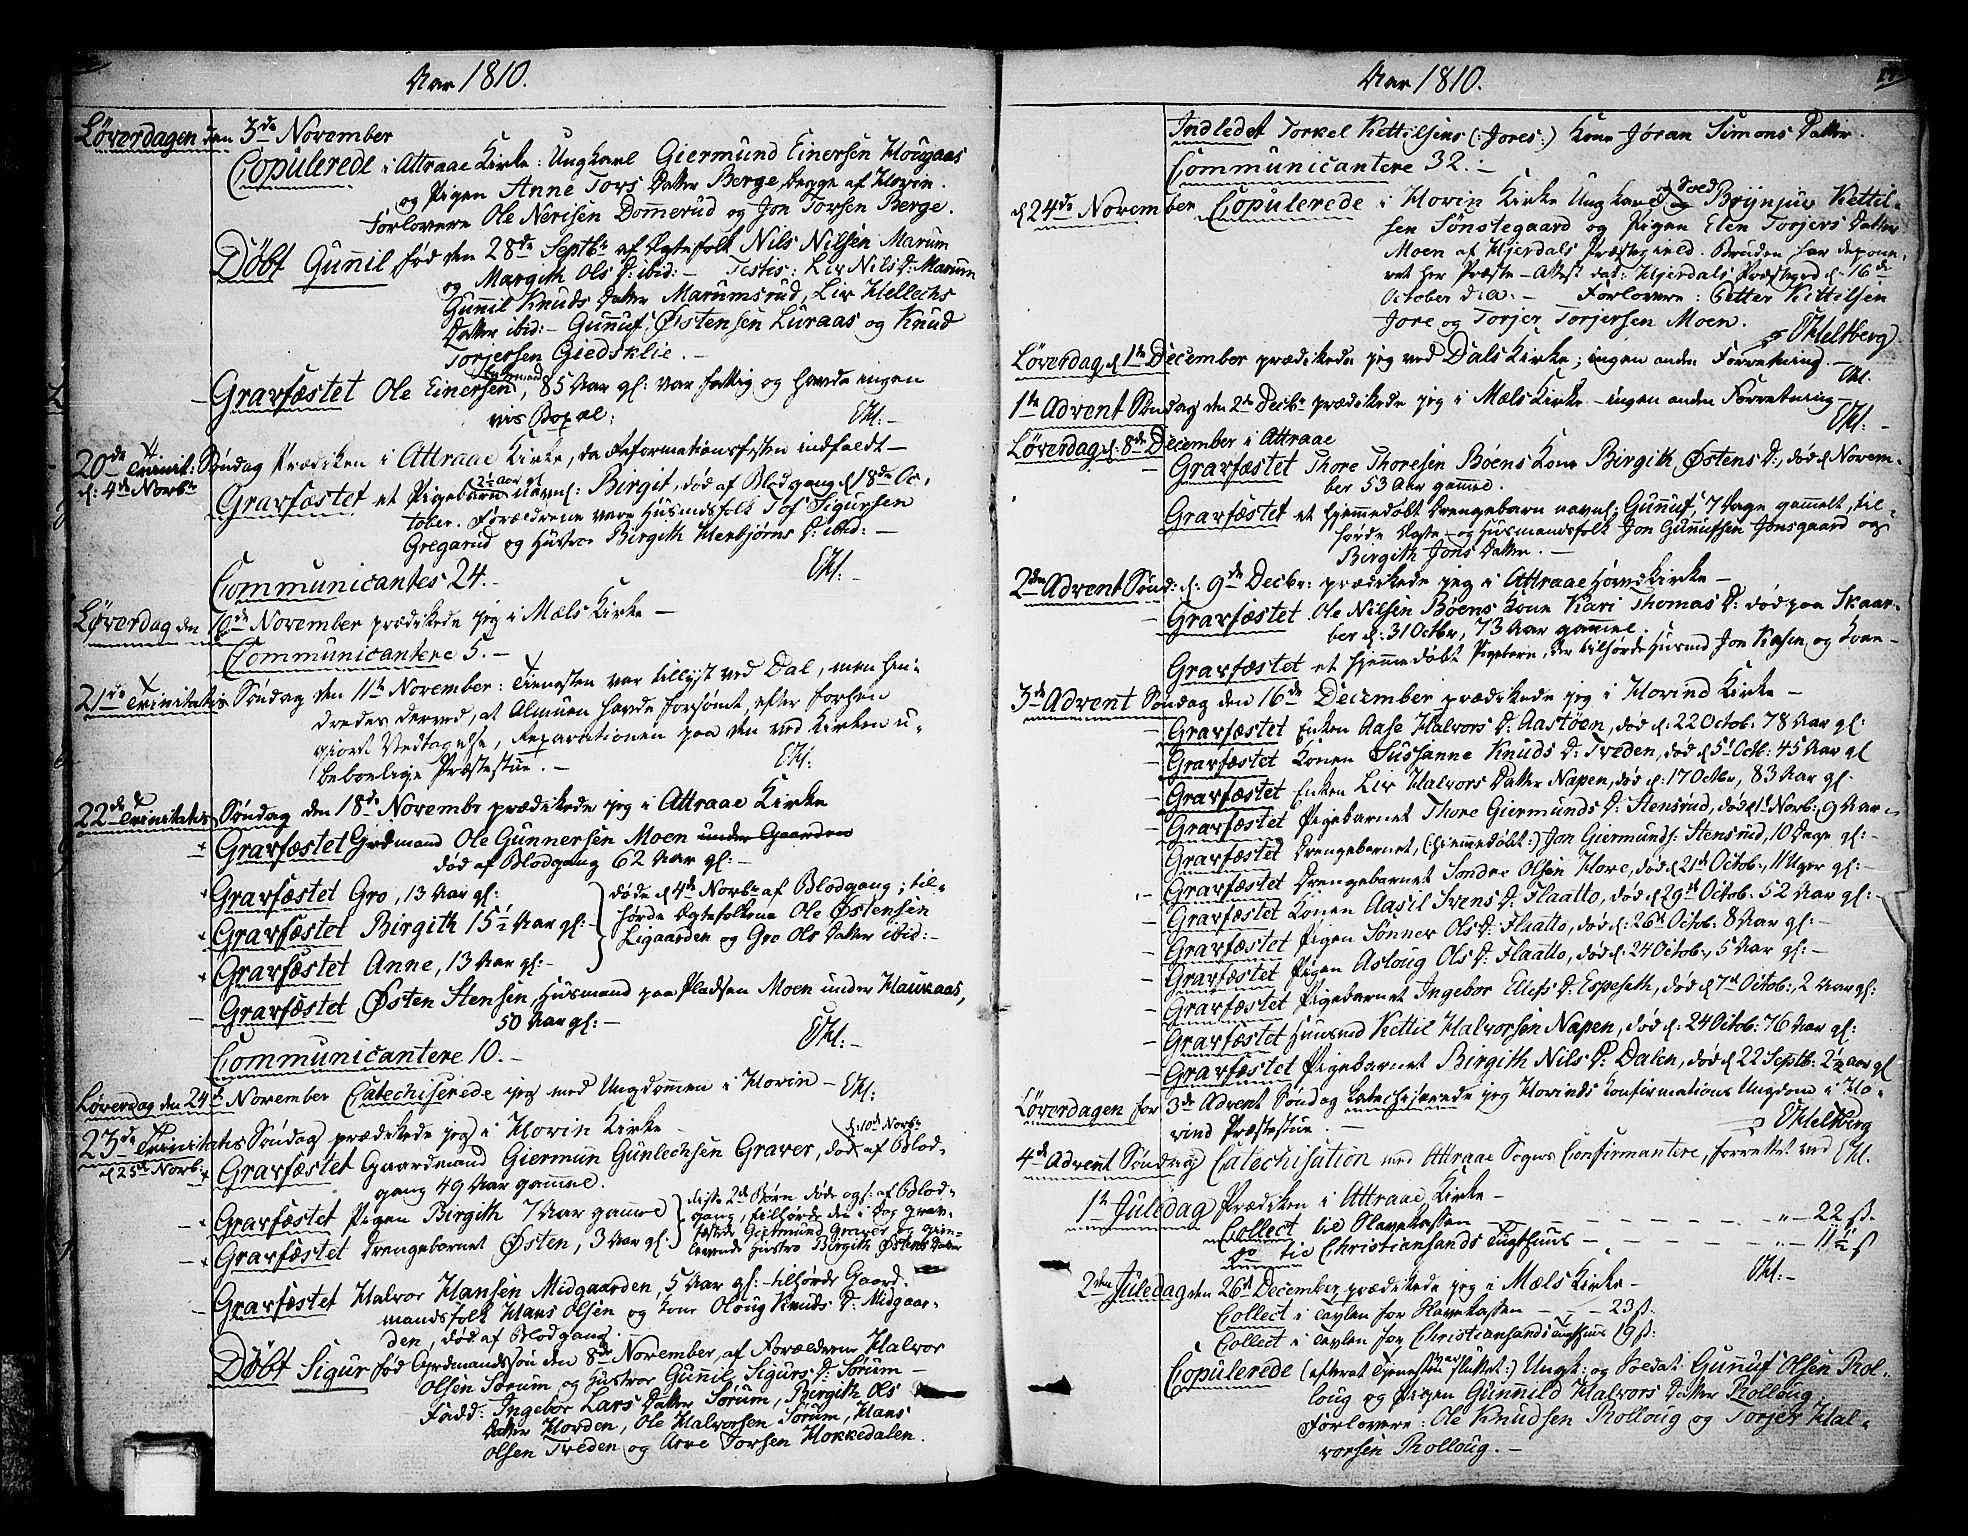 Aar 1810.
Løverdagen den 3de November
Copulerede i Attraae Kirke: Ungkarl Giermund Einersen Hougaas
og Pigen Anne Tors Datter Berge, begge af Hovin.
Forlovere Ole Nerisen Dommerud og Jon Torsen Berge.
Døbt Gunil fød den 28de Septbr af Ægtefolk Nils Nilsen Marum
og Margith Ols D: ibid: — Testis: Liv Nils D: Marum
Gunnil Knuds Datter Marumsrud, Liv Hellechs
Datter ibid: — Gunnuf Østensen Luraas og Knud
Torjersen Giedsklie. —
Gravfæstet Ole Einersen, 85 Aar gl: var fattig og havde ingen
vis Bopæl: Ohl: —
20de Trinit: Søndag Prædiken i Attraae Kirke, da Reformationsfesten indfaldt —
d: 4de Novbr
Gravfæstet et Pigebarn navnl: Birgit, 2½ Aar gl død af Blodgang d 18de Oc,
tober. Forældrene vare Husmdsfolk Tof Sigursen
Gregarud og Hustroe Birgith Herbjørns D: ibid: —
Communicantes 24. — Ohl: —
Løverdag den 10de November prædikede jeg i Mæls Kirke —
Communicantere 5. —
21de Trinitatis Søndag den 11te November: Tienesten var tillyst ved Dal, men hin-
dredes derved, at Almuen havde forsømt, efter forhen
giort Vedtagelse, Reparationen paa den ved Kirken u-
beboelige Præstestue. — Ohl:
22de Trinitatis Søndag den 18de Novembr prædikede jeg i Attraae Kirke
Gravfæstet Grdmand Ole Gunnersen Moen under Gaarden
død af Blodgang 62 Aar gl: —
Gravfæstet Gro, 13 Aar gl: døde d 4de Novbr af Blodgang; til-
Gravfæstet Birgith 15½ Aar gl: hørde Ægtefolkene Ole Østensen
Gravfæstet Anne, 13 Aar gl: — Ligaarden og Gro Ols Datter ibid: —
Gravfæstet Østen Stensen, Husmand paa Pladsen Moen under Haukaas,
50 Aar gl: — Ohl: —
Communicantere 10. —
Løverdag den 24de November Catechiserede jeg med Ungdomen i Hovin — Ohl:
23de Trinitatis Søndag prædikede jeg i Hovin Kirke —
d 25de Novb:
Gravfæstet Gaardmand Giermun Gunlechsen Graver, død d: 10de Novbr af Blod-
gang 49 Aar gammel.
Gravfæstet Pigen Birgith 7 Aar gammel disse 2de Børn døde ogs: af Blod-
gang, tilhørde den i dag grav-
Gravfæstet Drengebarnet Østen, 3 Aar gl: fæstede Giermund Graver og gien-
levende Hustro Birgith Østens Datter
Gravfæstet Halvor Hansen Midgaarden, 5 Aar gl: — tilhørde Gaard-
mandsfolk Hans Olsen og Kone Oloug Knuds D: Midgaar-
den, død af Blodgang. —
Døbt Sigur fød Grdmandssøn den 8de November, af Forældrene Halvor
Olsen Sørum og Hustroe Gunnil Sigurs D: Sørum —
Fadd: Ingebor Lars Datter Sørum, Birgith Ols
Datter Horden, Ole Halvorsen Sørum, Hans
Olsen Tveden og Aore Torsen Hokkedalen.
Aar 1810.
Indledet Torkel Kettilsens (: Jores:) Kone Jøran Simons Datter.
Communicantere 32: —
d 24de November Copulerede i Hovin Kirke Ungkarl og Soed Brynjul Kettil-
sen Sønstegaard og Pigen Elen Torjers Datter
Moen af Hjerdals Præstegield. Bruden har depone-
ret her Præste-Attest dat: Hjerdals Præstegrd d: 16de
October d: a: — Forlovere: Petter Kittilsen
Jore og Torjer Torjersen Moen. Ohleltberg
Løverdag d 1te December prædikede jeg ved Dals Kirke; ingen anden Forretning. — Ohl.
1te Advent Søndag den 2de Decbr prædikede jeg i Mæls Kirke — ingen anden Forretning — Ohl: —
Løverdag d: 8de December i Attraae
Gravfæstet Thore Thoresen Bøens Kone Birgith Østens D:, død d Novem-
ber 53 Aar gammel.
Gravfæstet et hjemmedøbt Drengebarn navnl: Gunnuf, 7 Dage gammelt, til-
hørde Ægte- og Husmandsfolk Jon Gunnufsen Jonsgaard og
Birgith Jons Datter. —
2den Advent Sønd: d: 9de Decbr: prædikede jeg i Attraae Hovedkirke —
Gravfæstet Ole Nilsen Bøens Kone Kari Thomas D: død paa Skaar-
ber d: 31 Octbr, 73 Aar gammel.
Gravfæstet et hjemmedøbt Pigebarn, der tilhørde Husmd Jon og Kone —
3de Advent Søndag den 16de December prædikede jeg i Hovind Kirke —
Gravfæstet Enken Aase Halvors D: Aastøen, død d: 22 Octob: 78 Aar gl:
Gravfæstet Konen Sussanne Knuds D: Tveden, død d 5te Octb: 45 Aar gl
Gravfæstet Enken Liv Halvors Datter Napen, død d: 17 Octbr, 83 Aar gl:
Gravfæstet Pigebarnet Thore Giermunds D: Stensrud, død d 1te Novb: 9 Aar —
Gravfæstet Drengebarnet, (: hjemmedøbt:) Jon Giermunds: Stensrud, 10 Dage gl:
Gravfæstet Drengebarnet Sondre Olsen Hore, død d: 21de Octob:, 11 Uger gl: —
Gravfæstet Konen Aasil Ivens D: Flaatto, død d 29de Octob: 52 Aar gl: —
Gravfæstet Pigen Sønner Ols D: Flaatto, død d: 26de Octob: 8 Aar gl:
Gravfæstet Pigen Asloug Ols D: Flaatto, død d: 24 Octob:, 5 Aar gl: —
Gravfæstet Pigebarnet Ingebor Elefs D: Espeseth, død d 7de Octob:, 2 Aar gl:
Gravfæstet Huusmd Kettil Halvorsen Napen, død d: 24 Octob: 76 Aar gl:
Gravfæstet Pigebarnet Birgith Nils D: Dalen, død d 22 Septb: 2½ aar gl
Løverdagen for 3de Advent Søndag Catechiserede jeg Hovinds Konfirmations Ungdom i Ho-
vind Præstestue. — Ohleltberg
4de Advent Søndag Catechisation med Attraae Sogns Confirmantere, forrettet ved Ohl.
1te Juledag Prædiken i Attraae Kirke —
Collect til Slavekassen — — — — — — „ — 22 ß.
do til Christiansands Tugthuus — — — — „ — 11½ ß
2den Juledag den 26de December prædikede jeg i Mæls Kirke — Ohl: —
Collect i Tavlen for Slavekassen — — — 23 ß:
Collect i Tavlen for Christiansands Tugthuus 19 ß:
Copulerede (efterat Tjenesten var sluttet:) Ungk: og Soldat Gunnuf Olsen Rol-
loug og Pigen Gunnild Halvors Datter Rolloug.
Forlovere: Ole Knudsen Rolloug og Torjer Hal-
vorsen Rolloug. —